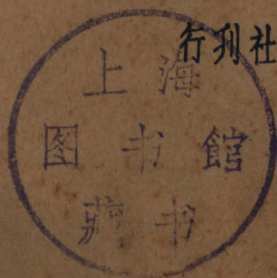 行刋社
上海
图书館
藏书